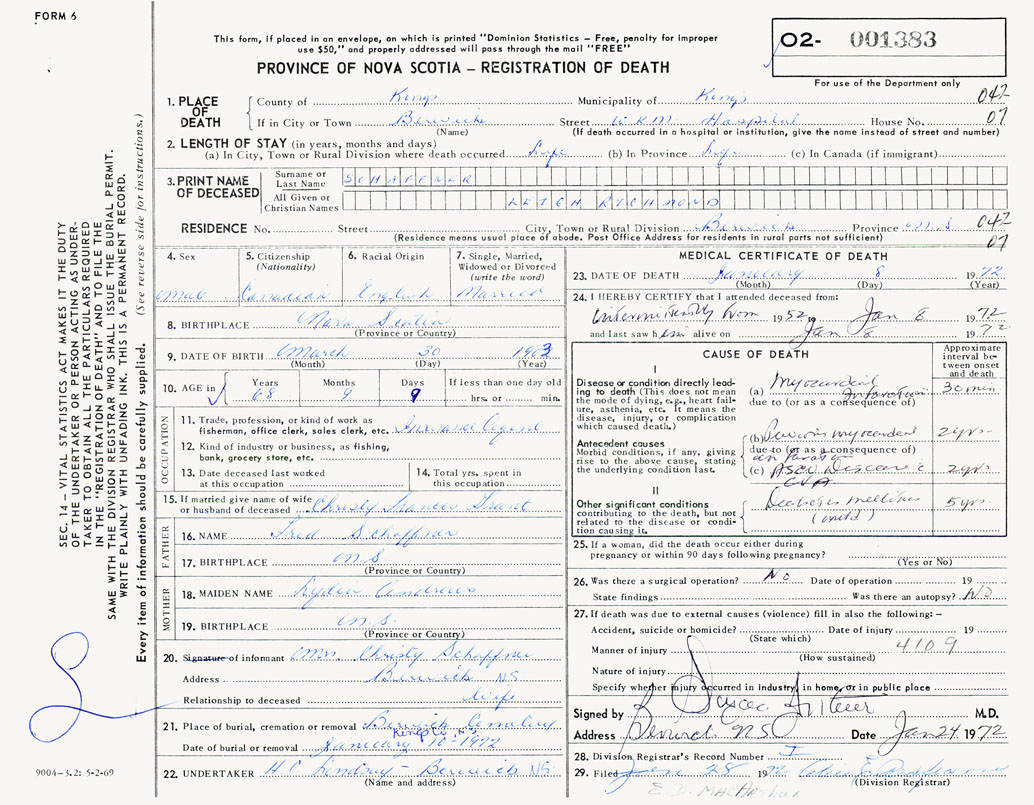 FORM 6
This form, if placed in an envelope, on which is printed "Dominion Statistics – Free, penalty for improper
use $50," and properly addressed will pass through the mail "FREE"
PROVINCE OF NOVA SCOTIA – REGISTRATION OF DEATH
02- 001383
For use of the Department only
SEC. 14 – VITAL STATISTICS ACT MAKES IT THE DUTY
OF THE UNDERTAKER OR PERSON ACTING AS UNDER-
TAKER TO OBTAIN ALL THE PARTICULARS REQUIRED
IN THE "REGISTRATION OF DEATH" AND TO FILE THE
SAME WITH THE DIVISION REGISTRAR WHO SHALL ISSUE THE BURIAL PERMIT.
WRITE PLAINLY WITH UNFADING INK. THIS IS A PERMANENT RECORD.
Every item of information should be carefully supplied. (See reverse side for instructions.)
1. PLACE OF DEATH
County of Kings Municipality of Kings 042
If in City or Town Berwick Street W.K.M Hospital House No. 07
(Name) (If death occurred in a hospital or institution, give the name instead of street and number)
2. LENGTH OF STAY (in years, months and days)
(a) In City, Town or Rural Division where death occurred Life (b) In Province Life (c) In Canada (if immigrant)
3. PRINT NAME OF DECEASED
Surname or Last Name SCHAFFNER
All Given or Christian Names LETCH RICHMOND
RESIDENCE No. Street City, Town or Rural Division Berwick Province N.S 042
(Residence means usual place of abode. Post Office Address for residents in rural parts not sufficient) 07
4. Sex Male
5. Citizenship (Nationality) Canadian
6. Racial Origin English
7. Single, Married, Widowed or Divorced (write the word) Married
8. BIRTHPLACE Nova Scotia
(Province or Country)
9. DATE OF BIRTH March 30 1903
(Month) (Day) (Year)
10. AGE in Years 68 Months 9 Days 9 If less than one day old hrs. or min.
OCCUPATION
11. Trade, profession, or kind of work as
fisherman, office clerk, sales clerk, etc. Insurance Agent
12. Kind of industry or business, as fishing,
bank, grocery store, etc.
13. Date deceased last worked
at this occupation
14. Total yrs. spent in
this occupation
15. If married give name of wife
or husband of deceased Christy Frances Grant
FATHER
16. NAME Fred Schaffner
17. BIRTHPLACE N.S.
(Province or Country)
MOTHER
18. MAIDEN NAME Lydia Andrews
19. BIRTHPLACE N.S.
(Province or Country)
20. Signature of informant Mrs. Christy Schaffner
Address Berwick NS
Relationship to deceased Wife
21. Place of burial, cremation or removal Berwick Cemetery
Kings Co, N.S.
Date of burial or removal January 10-1972
22. UNDERTAKER H C Lindsay - Berwick NS
(Name and address)
9004-3.2: 5-2-69
MEDICAL CERTIFICATE OF DEATH
23. DATE OF DEATH January 8 1972
(Month) (Day) (Year)
24. I HEREBY CERTIFY that I attended deceased from:
intermittently from 1952 to Jan 8 1972
and last saw him alive on Jan 8 1972
CAUSE OF DEATH
Approximate interval between onset and death
I
Disease or condition directly lead-
ing to death (This does not mean
the mode of dying, e.g., heart fail-
ure, asthenia, etc. It means the
disease, injury, or complication
which caused death.)
(a) Myocardial Infarction 30 min
due to (or as a consequence of)
Antecedent causes
Morbid condition, if any, giving
rise to the above cause, stating
the underlying condition last.
(b) Previous myocardial infarction 2 yrs.
due to (or as a consequence of)
(c) ASCV Disease c CVA 2 yrs
II
Other significant conditions
contributing to the death, but not
related to the disease or condi-
tion causing it.
Diabetes mellitus 5 yrs.
(mild)
25. If a woman, did the death occur either during
pregnancy or within 90 days following pregnancy?
(Yes or No)
26. Was there a surgical operation? No Date of operation 19
State findings Was there an autopsy? No
27. If death was due to external causes (violence) fill in also the following: –
Accident, suicide or homicide? Date of injury 19
(State which)
Manner of injury 4109
(How sustained)
Nature of injury
Specify whether injury occurred in industry, in home, or in public place
Signed by M.D.
Address Berwick NS Date Jan 24 1972
28. Division Registrar's Record Number 1
29. Filed Jan 28 1972
(Division Registrar)
E. D. MacArthur